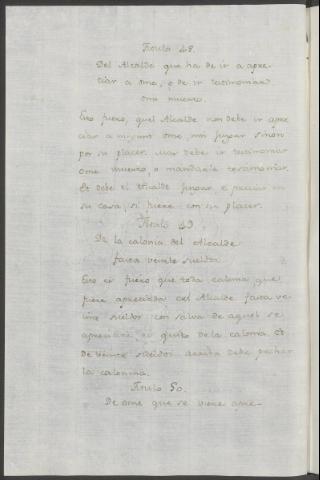 Titulo 48.
Del Alcalde que ha de ir a apre-
ciar a ome, o de ir testimoniar
ome muerto.
Esto es fuero, quel Alcalde non debe ir apre
ciar a ningun ome, nin juzgar sinon
por su placer. Mas debe ir testimoniar
ome muerto, o mandarle testimoniar.
Et debe el Alcalde juzgar, e preciar en
su casa, si fuere con su placer.
Titulo 49
De la calonia del Alcalde
fasta veinte sueldos
Esto es fuero que toda calonia que
fuere apreciada del Alcalde fasta ve-
inte sueldos con salva de aquel se
apreciare, es quito de la calonia. Et
de veinte sueldos arriba debe pechar
la calonnia.
Titulo 50.
De ome que se viene apre-